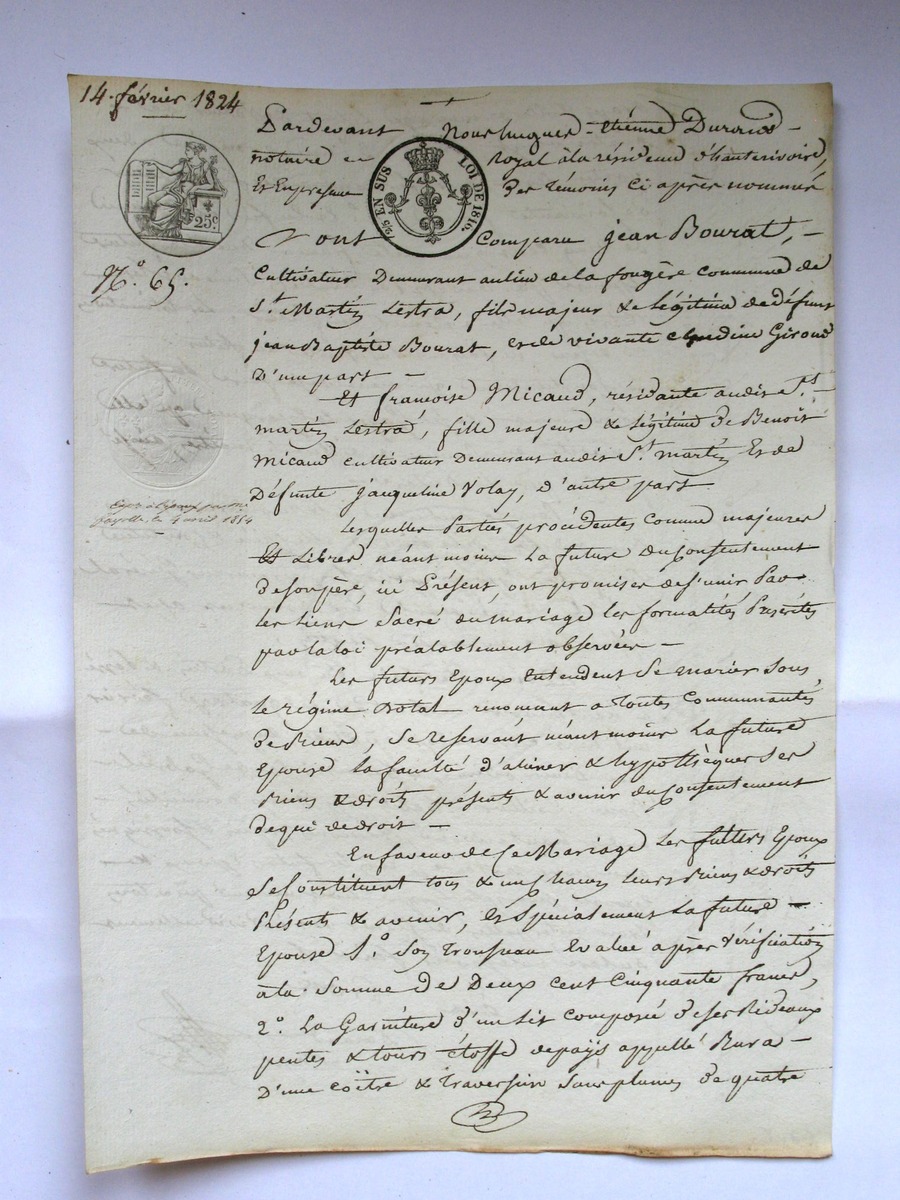 14. février 1824
Pardevant Nous hugues - étiénne Durand -
notaire royal à la résidence d'hauterivoire,
Et En presence Des témoins Ci après nommés
25 c.
25 C. EN SUS LOI DE 1816.
Vont Comparu jean Bourat, -
N.º 65.
Cultivateur Demeurant au lieu de la fougère commune de
S.t Martin Lestra, fils majeur & légitime de défunt
jean Baptiste Bourat, et de vivante claudine Giroud
D'une part -
Et francoise Micaud, résidante audit S.t
martin Lestra, fille majeure & légitime De Benoit
Micaud cultivateur Demeurant audit S.t martin Et de
Défunte jacqueline Volay, D'autre part
le 4 avril 1854
Lesquelles Parties procédentes comme majeures
Et Libres néantmoins La future du consentement
de son père, ici Présent, ont promises de s'unir Par
les liens Sacré du mariage les formalités Prescrites
par la loi préalablement observées -
Les futurs Epoux Entendent Se marier Sous
le régime dotal renoncant a toutes Communautés
de Biens, Se reservant néantmoins La future
Epouse la faculté d'aliéner & hypothèquer Ses
Biens & droits présents & avenir du Consentement
de qui de droit -
En faveur de Ce Mariage Les futurs Epoux
Se Constituent tous & un chacun leurs Biens & droits
Présents & avenir, Et Spécialement La future -
Epouse 1.º Son trousseau Evalué après Vérification
à la Somme de Deux cent Cinquante francs,
2.º La Garniture d'un lit composée de ses Rideaux
pentes & tours étoffe de païs appellé Rura -
D'une coïtre & traversin Sans plumes de quatre